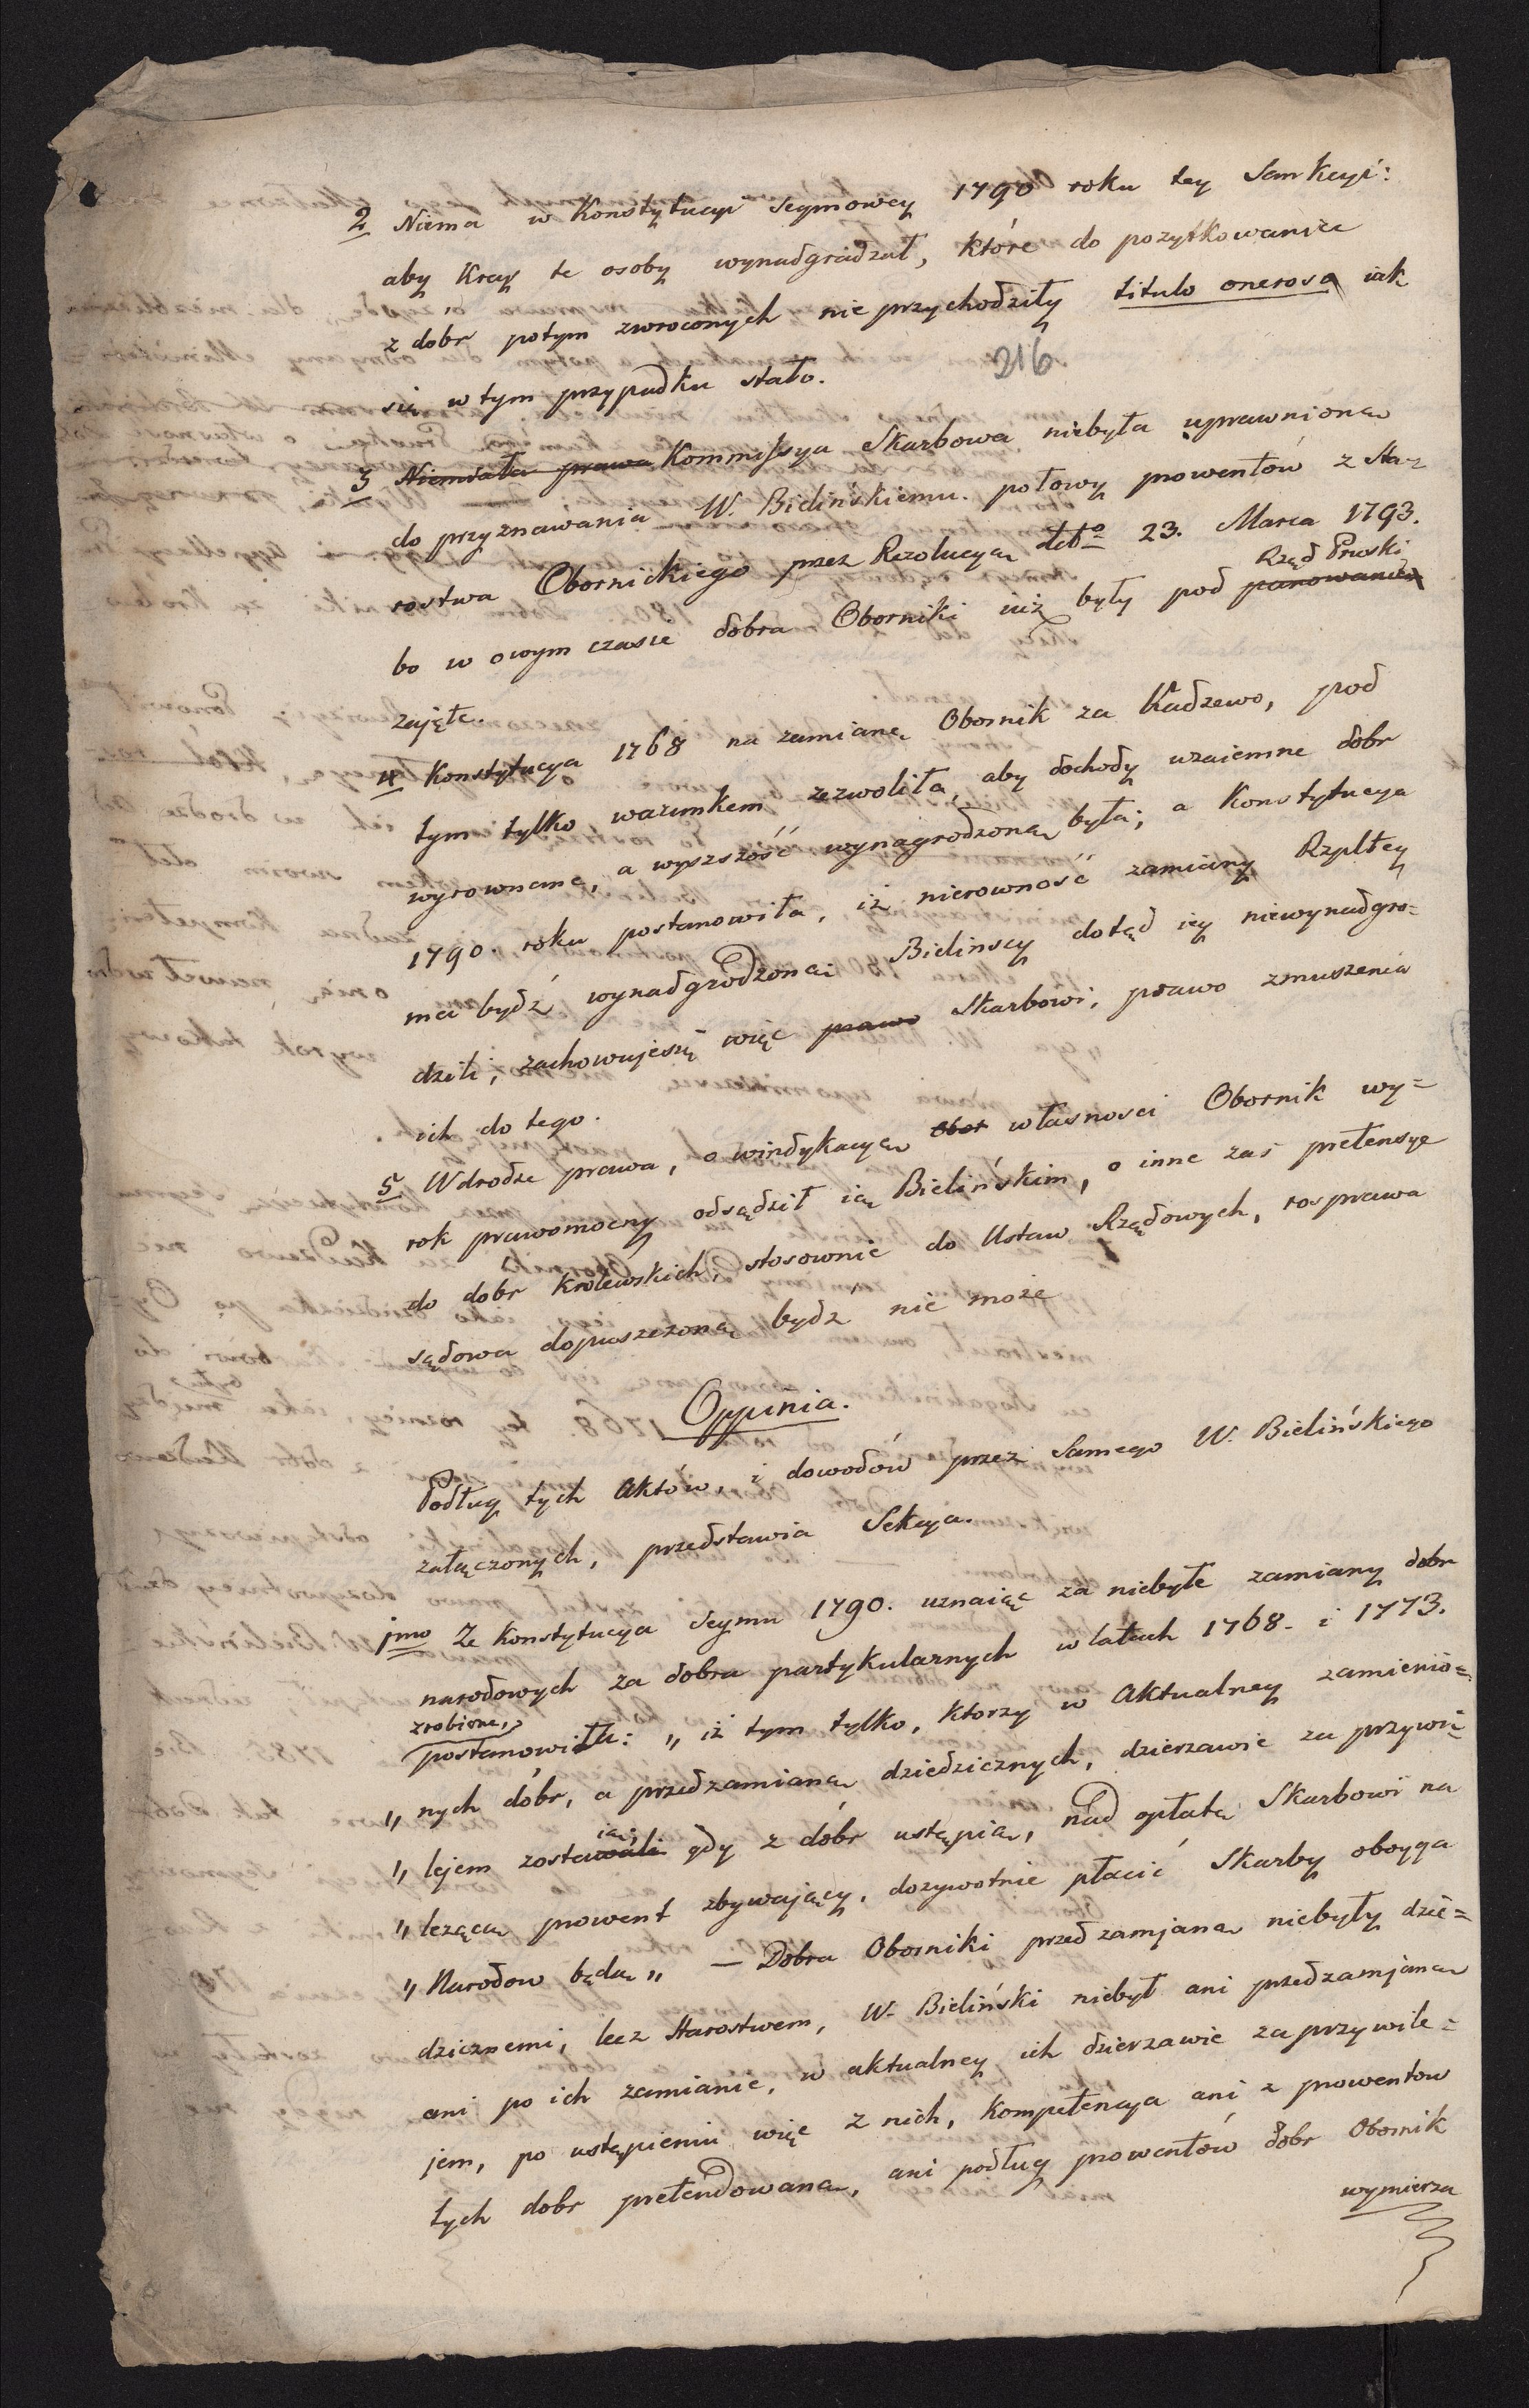 2 Niema w Konstytucyi Seymowey 1790 roku tey Sankcyi:
aby Kray te osoby wynadgradzał, które do pozytkowania
z dobr potym zwroconych nie przychodziły titulo oneroso iak
się w tym przypadku stało.
216
3 Niemiała prawa Kommissya Skarbowa niebyła uprawnioną
do przyznawania W. Bielińskiemu połowy prowentów z Sta=
rostwa Obornickiego przez Rezolucyą dtto 23. Marca 1793.
Rząd Pruski
bo w owym czasie dobra Oborniki iuż były pod panowanie
zajęte.
4 Konstytucya 1768 na zamianę Obornik za Kadzewo, pod
tym tylko warunkem zezwoliła, aby dochody wzaiemne dobr
wyrownane, a wyszszość wynagrodzoną była; a Konstytucya
1790. roku postanowiła, iż nierowność zamiany Rzpltey
ma bydź wynadgrodzona; Bielinscy dotąd iey niewynadgro=
dzili; zachowujesię więc prawo Skarbowi, prawo zmuszenia
ich do tego.
5 W drodze prawa, o windykacyą Obor własnosci Obornik wy=
rok prawomocny odsądził ią Bielińskim, o inne zaś pretensye
do dobr Królewskich, stosownie do Ustaw Rządowych, rosprawa
sądowa dopuszczoną bydź nie może
Oppinia.
Podług tych Aktów, i dowodów przez Samego W. Bielińskiego
załączonych, przedstawia Sekcya.
jmo Ze Konstytucya Seymu 1790. uznaiąc za niebyłe zamiany dobr
narodowych za dobra partykularnych w latach 1768. i 1773.
zrobione,
postanowiła: „ iż tym tylko, ktorzy w Aktualney zamienio=
„ nych dóbr, a przed zamianą dziedzicznych, dzierzawie za przywi=
ią;
„ lejem zostawali gdy z dóbr ustąpią, nad opłatę Skarbowi na
„ lezącą prowent zbywający, dozywotnie płacić Skarby oboyga
„ Narodow będą „ — Dobra Oborniki przed zamjaną niebyły dzie=
dzicznemi, lecz Starostwem, W. Bieliński niebył ani przed zamjaną
ani po ich zamianie, w aktualney ich dzierzawie za przywile=
jem, po ustąpieniu więc z nich, Kompetencya ani z prowentow
tych dobr pretendowana, ani podług prowentów dobr Obornik
wymierza